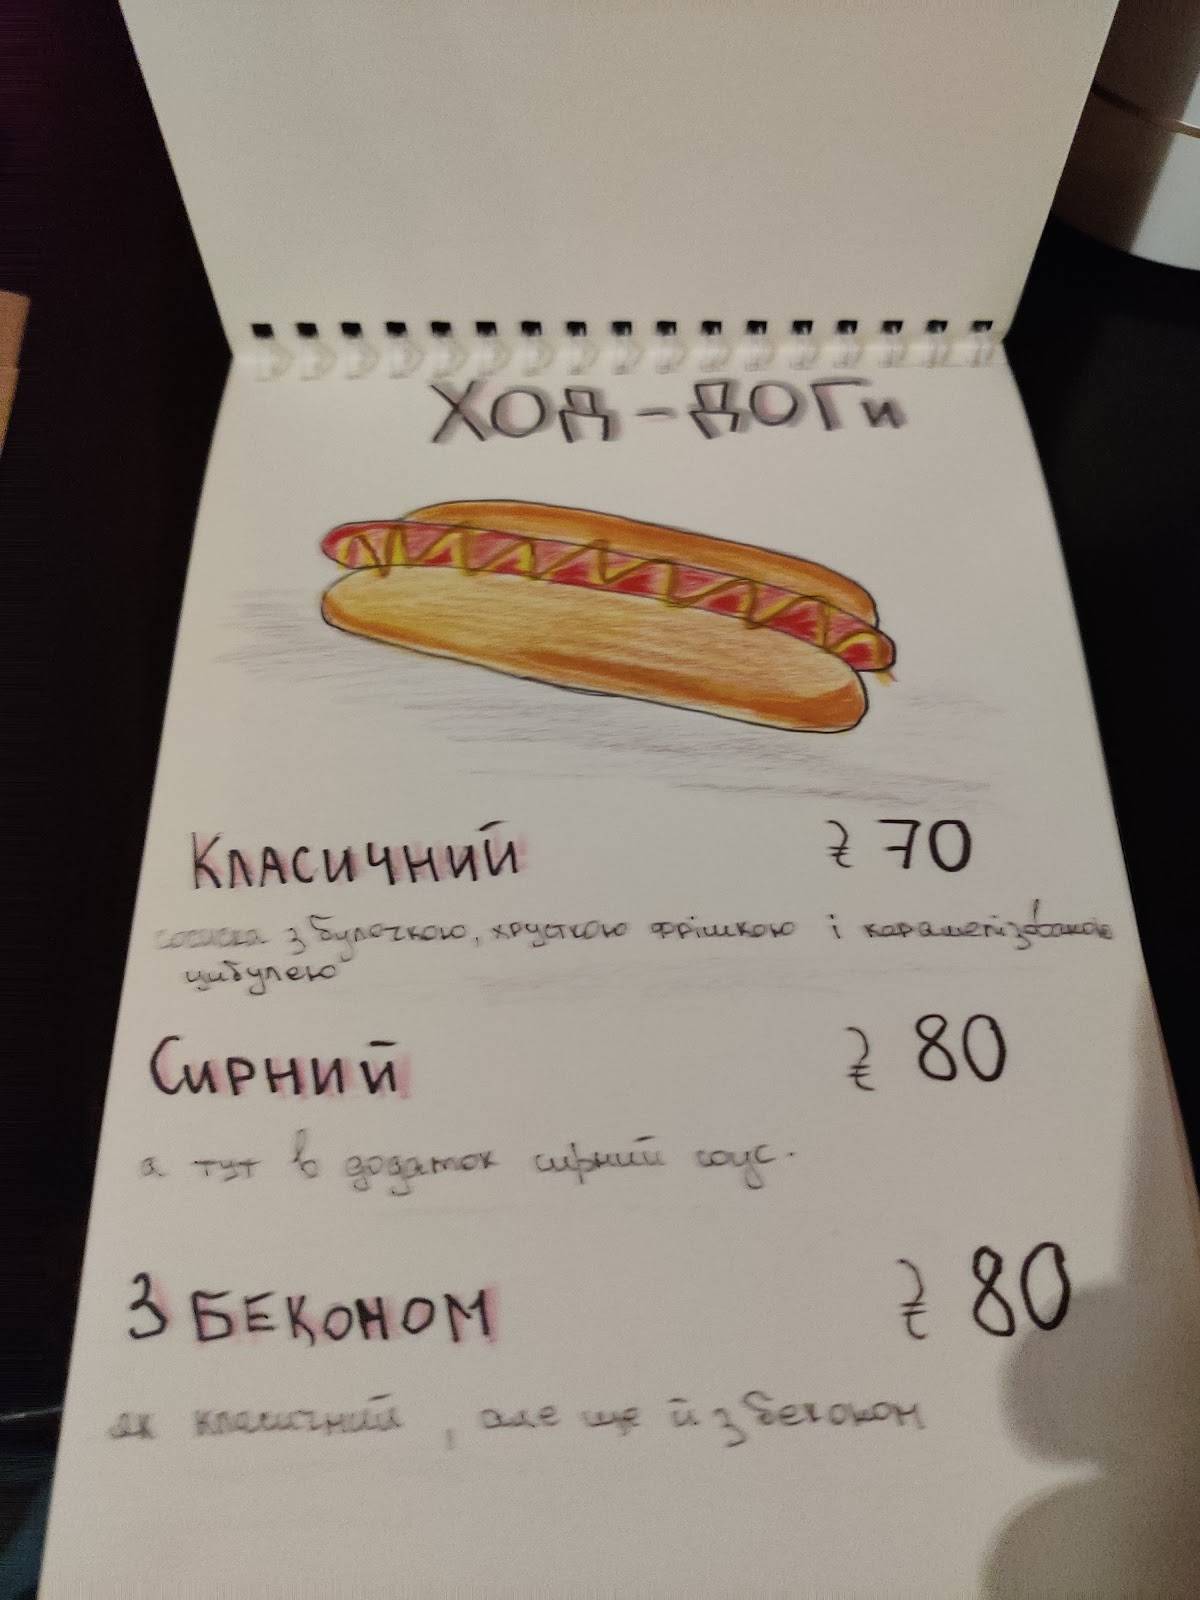 ХОД-ДОГи
Класичний ₴ 70
сосиска з булочкою, хрусткою фрішкою і карамелізованою
цибулею
Сирний ₴ 80
а тут в додаток сирний соус.
З БЕКОНОМ ₴ 80
як класичний, але ще й з бекокон